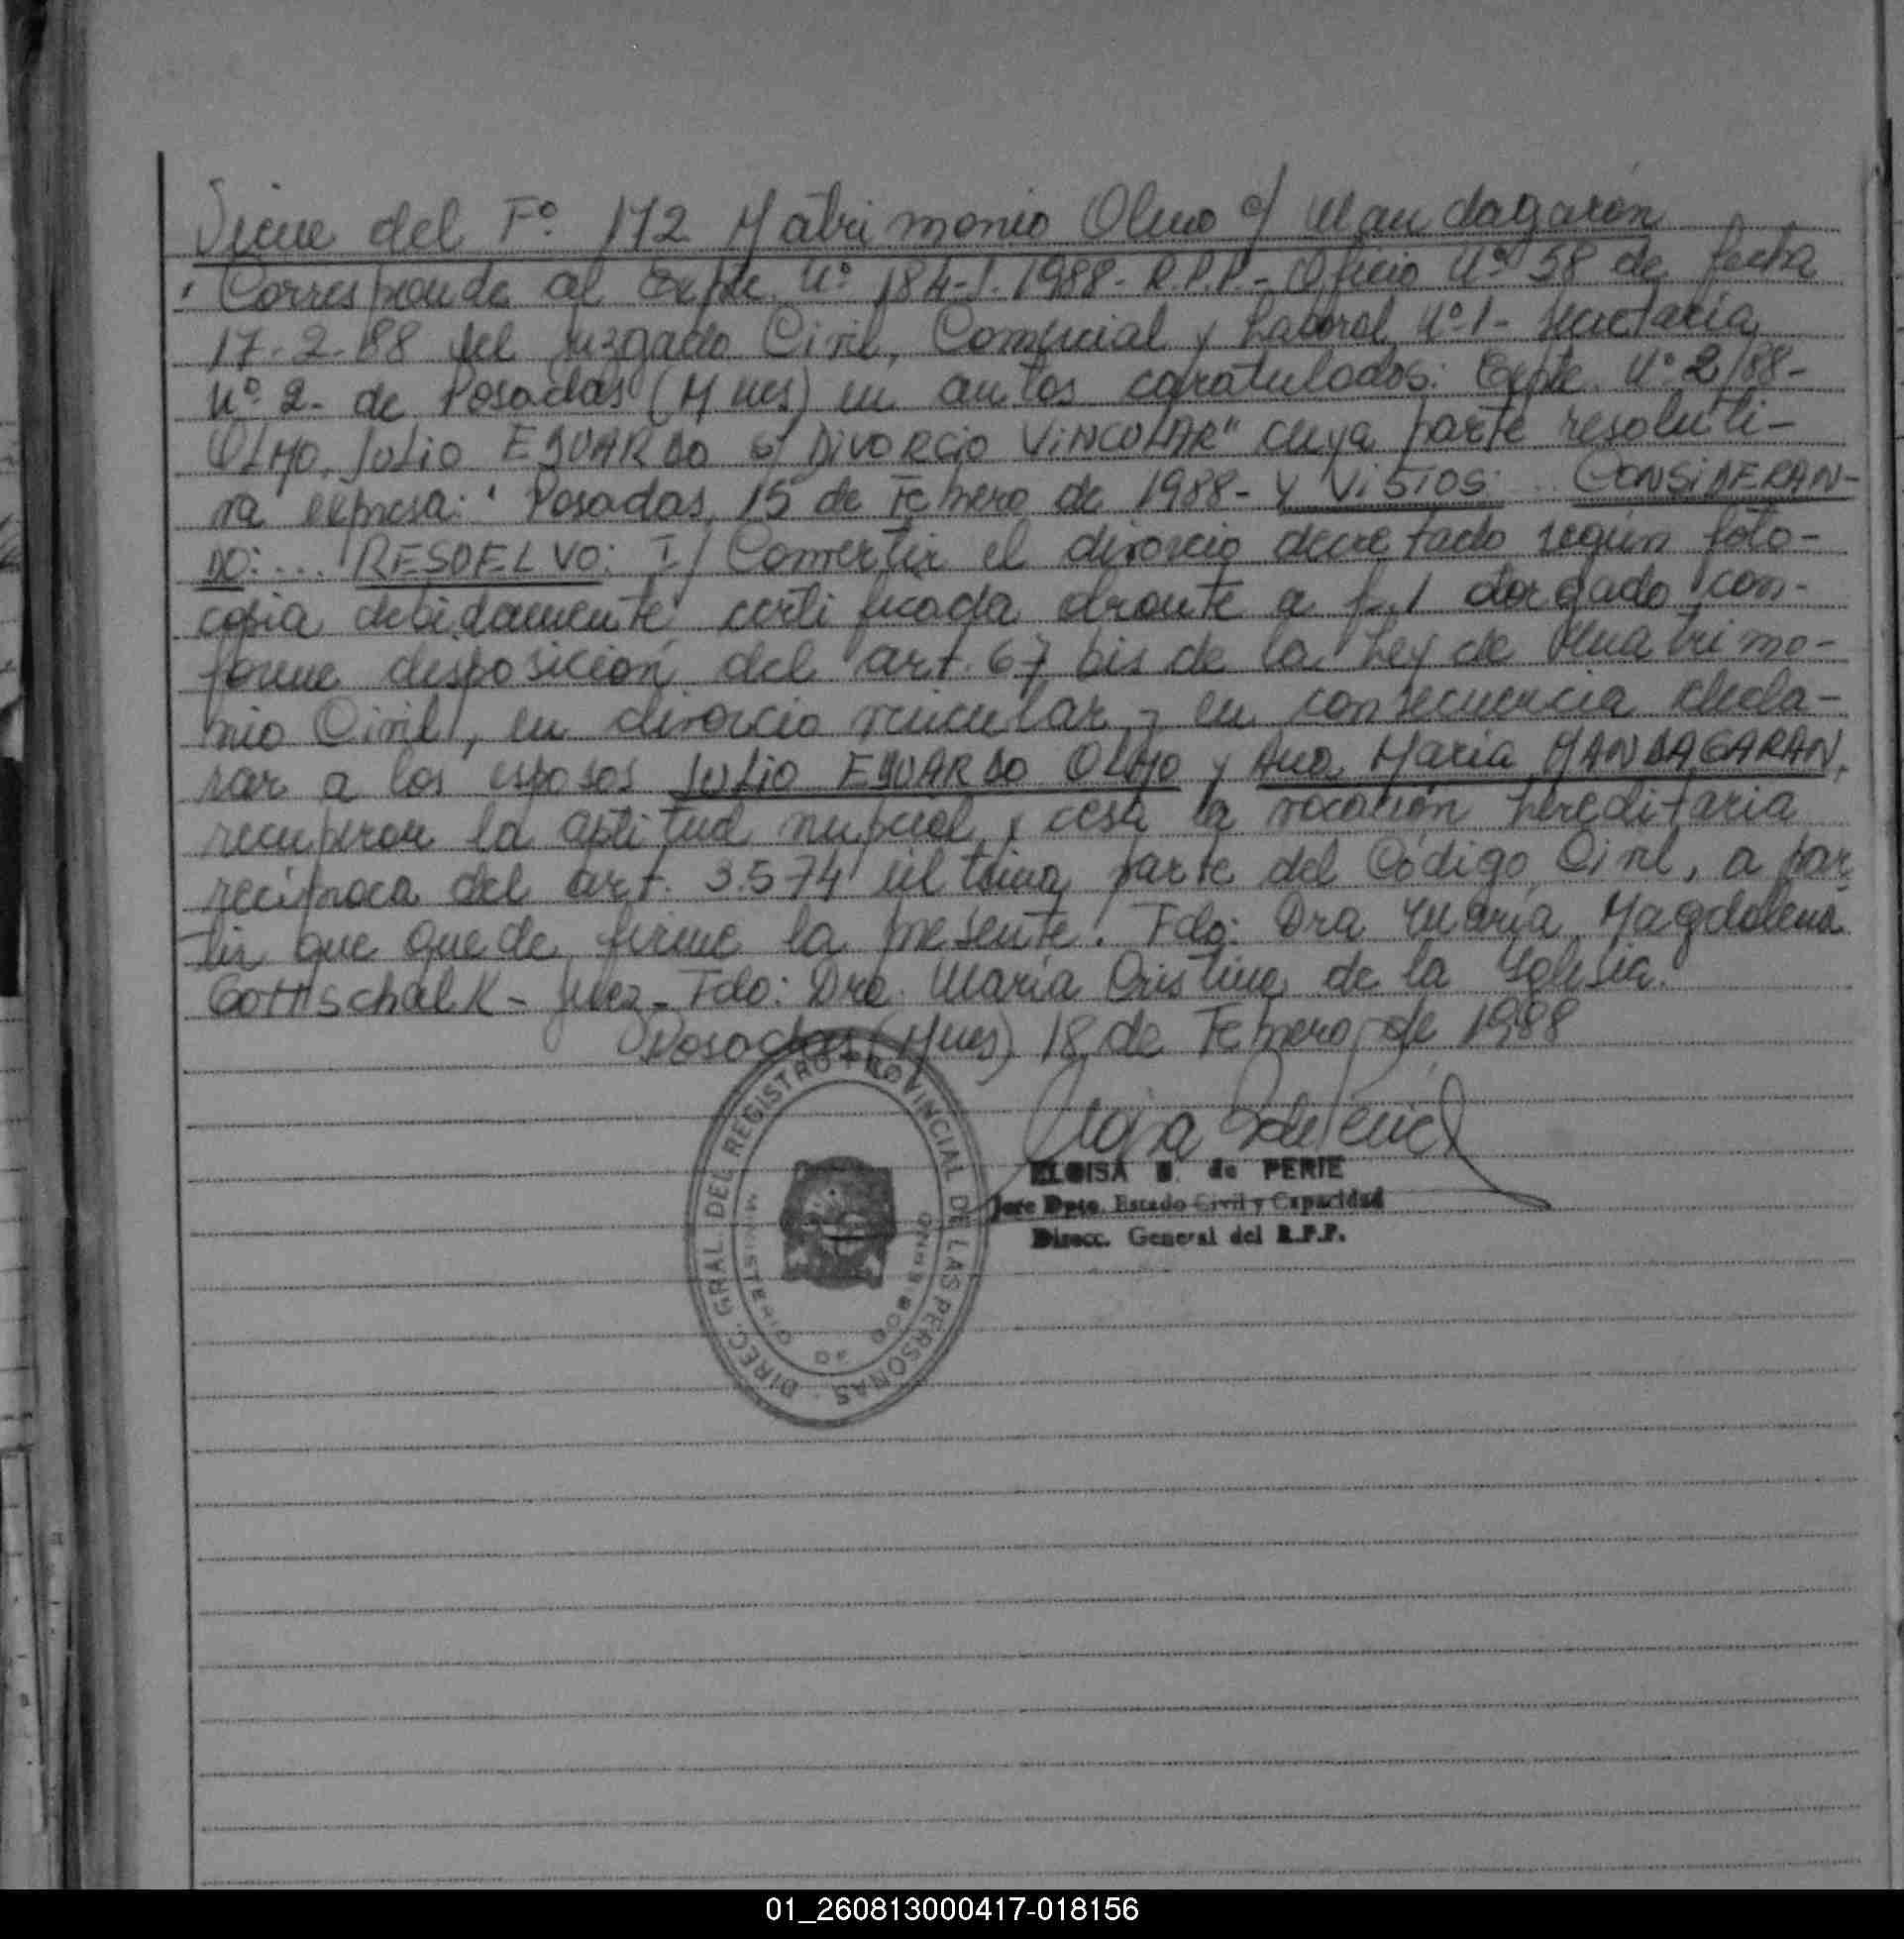 Viene del Fº 172 Matrimonio Olmo c/ Mandagarán
Corresponde al Expte. Nº 184-J-1988- R.P.P.- Oficio Nº 58 de fecha
17-2-88 del Juzgado Civil, Comercial y Laboral Nº 1- Secretaria
Nº 2- de Posadas (Mnes) en autos caratulados: Expte. Nº 2/88-
OLMO, JULIO EDUARDO s/ DIVORCIO VINCULAR" cuya parte resoluti-
va expresa: "Posadas, 15 de Febrero de 1988- Y VISTOS: .. CONSIDERAN-
DO: ... RESUELVO: I/ Convertir el divorcio decretado según foto-
copia debidamente certificada obrante a fs. 1 otorgado con-
forme disposición del art. 67 bis de la Ley de Matrimo-
nio Civil, en divorcio vincular y en consecuencia decla-
rar a los esposos JULIO EDUARDO OLMO y Ana María MANDAGARAN,
recuperan la aptitud nupcial y cesa la vocación hereditaria
recíproca del art. 3.574 última parte del Código Civil, a par
tir que quede firme la presente. Fdo: Dra María Magdalena
Gottschalk - Juez - Fdo: Dra. María Cristina de la Iglesia.
Posadas (Mnes) 18 de Febrero de 1988
DIREC. GRAL. DEL REGISTRO PROVINCIAL DE LAS PERSONAS
MINISTERIO DE GOBIERNO
ELOISA B. de PERIE
Jefe Dpto. Estado Civil y Capacidad
Direcc. General del R.P.P.
01_260813000417-018156